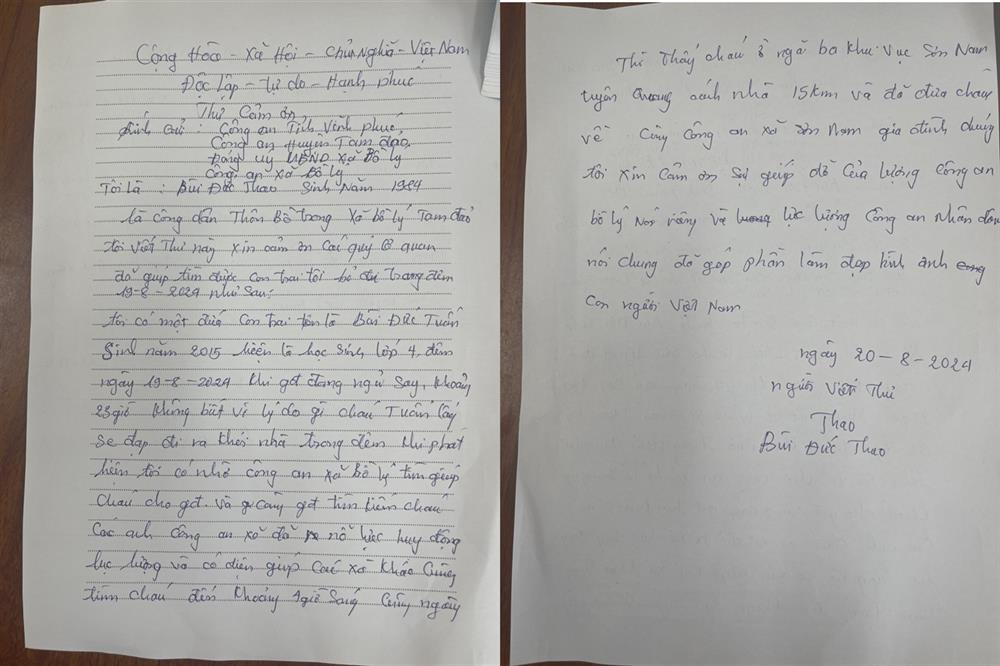 Cộng Hòa - Xã Hội - Chủ Nghĩa - Việt Nam
Độc Lập - Tự do - Hạnh phúc
Thư Cảm ơn,
Kính Gửi : Công an Tỉnh Vĩnh phúc,
Công an Huyện Tam đảo.
Đảng uy UBND xã Bồ lý
Công an xã Bồ lý
Tôi là : Bùi Đức Thao Sinh Năm 1984
là công dân Thôn Bồ trong xã bồ lý Tam đảo
tôi viết Thư này xin cảm ơn Các quý Cơ quan
đã giúp tìm được con trai tôi bỏ đi trong đêm
19-8-2024 như sau:
tôi có một đứa Con trai tên là Bùi Đức Tuấn
Sinh năm 2015 hiện là học sinh lớp 4, đêm
ngày 19-8-2024 Khi gđ đang ngủ say, Khoảng
23giờ Không biết vì lý do gì cháu Tuấn lấy
xe đạp đi ra khỏi nhà trong đêm khi phát
hiện tôi có nhờ công an xã bồ lý tìm giúp
Cháu cho gđ. và cùng gđ tìm kiếm cháu
Các anh công an xã đã nỗ lực huy động
lực lượng và có diện giúp Các xã Khác Cùng
tìm cháu đến Khoảng 4giờ Sáng Cùng ngày
Thì Thấy cháu ở ngã ba khu vực Sơn Nam
tuyên Quang cách nhà 15km và đã đưa cháu
về Cùng Công an xã Sơn Nam gia đình chúng
tôi xin Cảm ơn sự giúp đỡ của lượng Công an
bồ lý Nói riêng và lực lượng Công an Nhân dân
nói chung đã góp phần làm đẹp hình ảnh
Con người Việt Nam
ngày 20-8-2024
người Viết Thư
Thao
Bùi Đức Thao